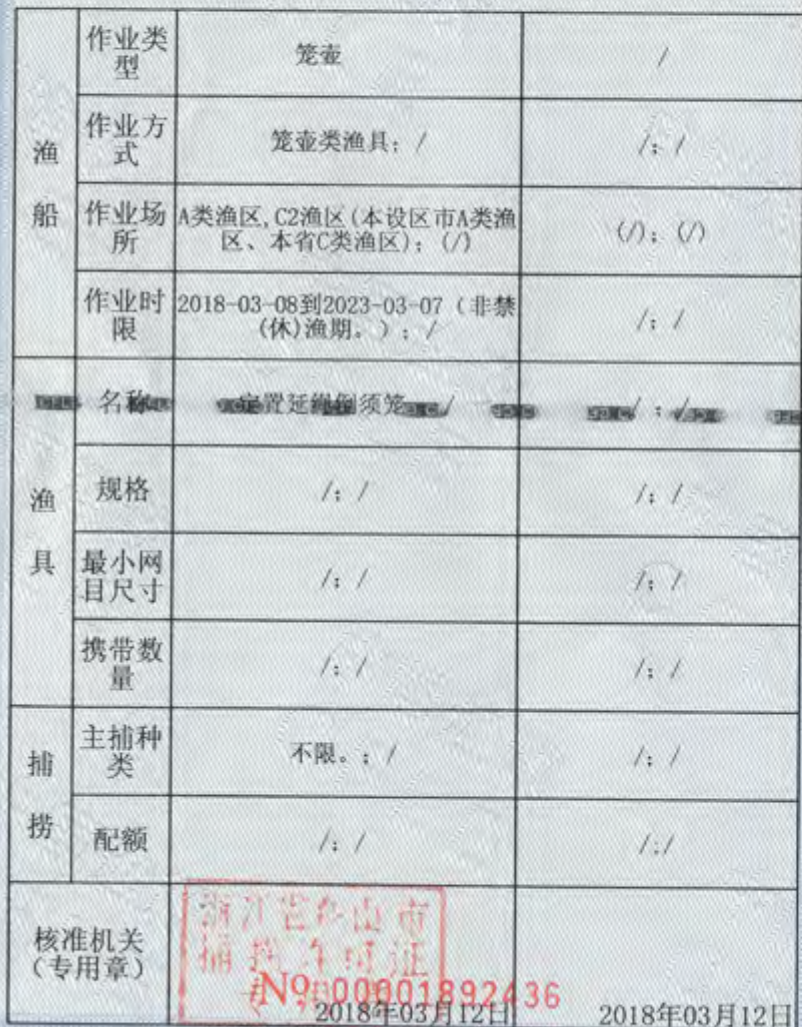 作业类型 笼壶 /
渔船
作业方式 笼壶类渔具; / /; /
作业场所 A类渔区,C2渔区(本设区市A类渔区、本省C类渔区); (/) (/); (/)
作业时限 2018-03-08到2023-03-07（非禁(休)渔期。）; / /; /
渔具
名称 定置延绳倒须笼 / / ; /
规格 /; / /; /
最小网目尺寸 /; / /; /
携带数量 /; / /; /
捕捞
主捕种类 不限。; / /; /
配额 /; / /;/
核准机关（专用章）
浙江省舟山市
捕捞许可证
专用章
No 00001892436
2018年03月12日 2018年03月12日